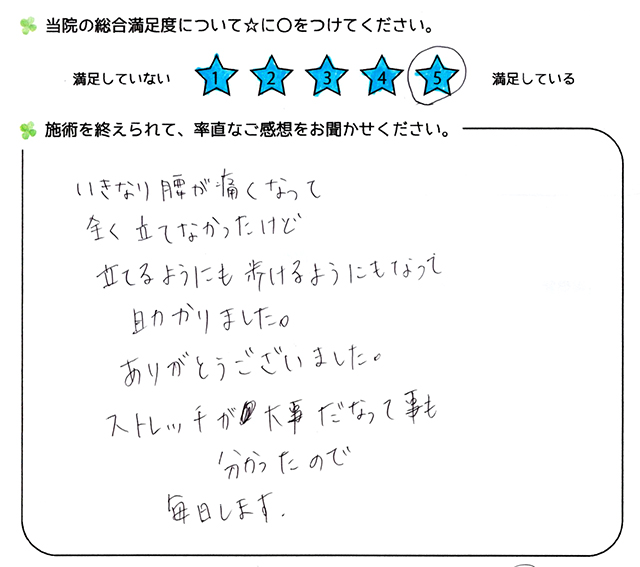 当院の総合満足度について☆に○をつけてください。
満足していない 1 2 3 4 5 満足している
施術を終えられて、率直なご感想をお聞かせください。
いきなり腰が痛くなって
全く立てなかったけど
立てるようにも歩けるようにもなって
助かりました。
ありがとうございました。
ストレッチが大事だなって事も
分かったので
毎日します.